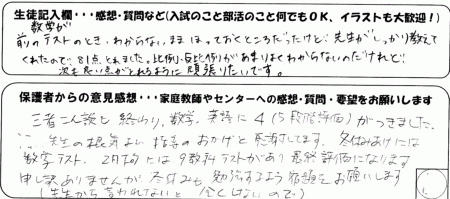 生徒記入欄・・・感想・質問など(入試のこと部活のこと何でもOK、イラストも大歓迎!)
数学が
前のテストのとき、わからないまま ほっておくところだったけど、先生がしっかり教えて
くれたので、81点 とれました。比例・反比例があまりよくわからないのだけれど、
次も良い点がとれるように 頑張りたいです。
保護者からの意見感想・・・家庭教師やセンターへの感想・質問・要望をお願いします
三者こん談も 終わり、数学、英語に 4(5段階評価)がつきました。
先生の根気よい 指導のおかげと 感謝してます。冬休みあけには
数学テスト、2月初には 9教科テストがあり 最終評価になります
申し訳ありませんが 冬休みも 勉強するよう 宿題をお願いします
(先生から 言われないと 全くしないので)